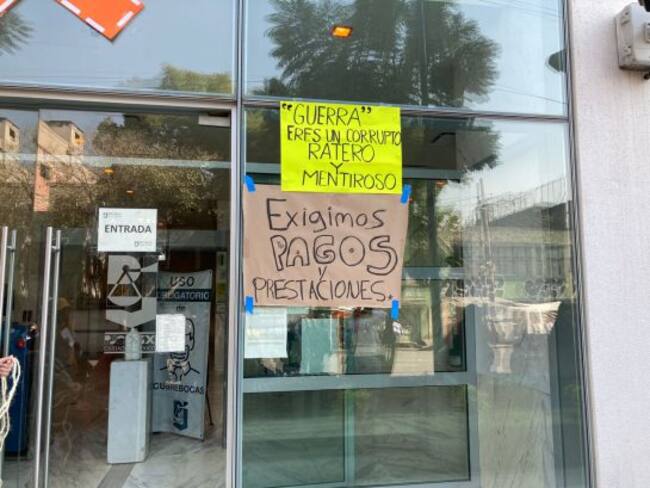 "GUERRA"
ERES UN CORRUPTO
RATERO
Y
MENTIROSO
Exigimos
PAGOS
Y
PRESTACIONES.
ENTRADA
USO
OBLIGATORIO
de
CUBREBOCAS